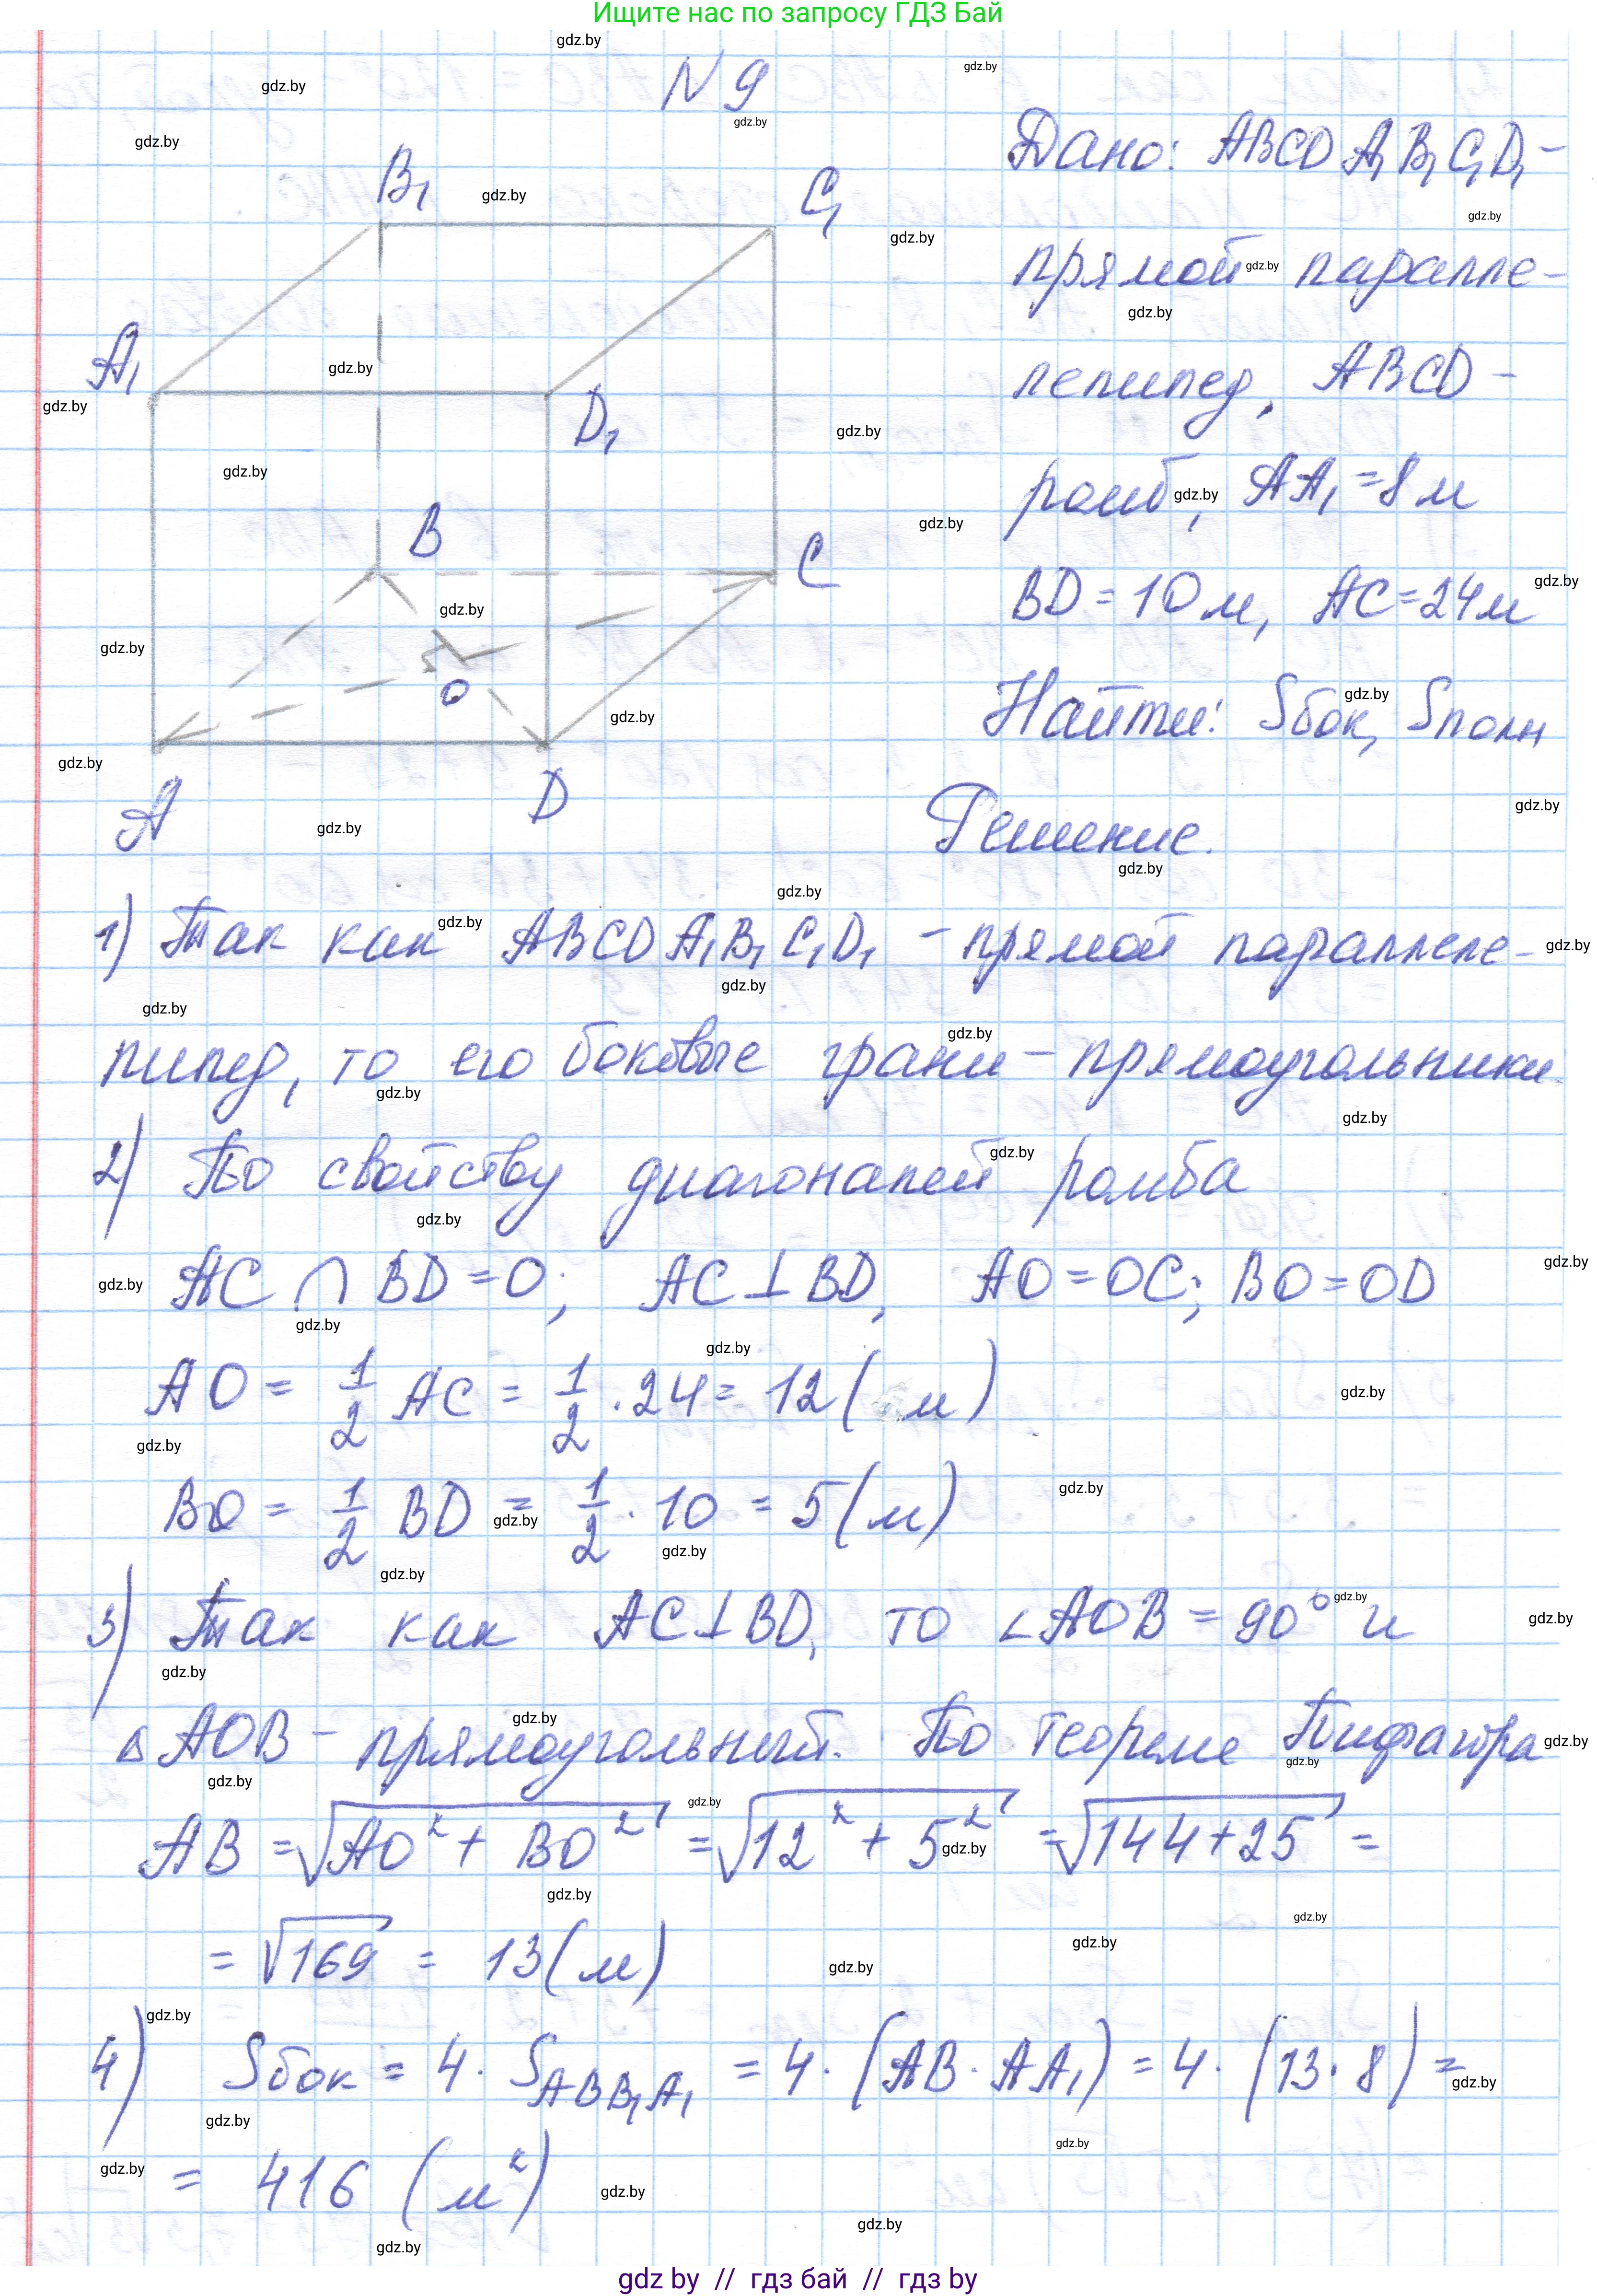 Ищите нас по запросу ГДЗ Бай
N 9
Дано: ABCDA₁B₁C₁D₁ –
прямой паралле-
лепипед, ABCD –
ромб, AA₁ = 8 м
BD = 10 м, AC = 24 м
Найти: Sбок, Sполн
B₁
C₁
A₁
D₁
B
C
O
A
D
Решение.
1) Так как ABCDA₁B₁C₁D₁ – прямой параллеле-
пипед, то его боковые грани – прямоугольники.
2) По свойству диагоналей ромба
AC ∩ BD = O; AC ⊥ BD, AO = OC; BO = OD
AO = 1/2 AC = 1/2 · 24 = 12 (м)
BO = 1/2 BD = 1/2 · 10 = 5 (м)
3) Так как AC ⊥ BD, то ∠AOB = 90° и
△AOB – прямоугольный. По теореме Пифагора
AB = √(AO² + BO²) = √(12² + 5²) = √(144 + 25) =
= √169 = 13 (м)
4) Sбок = 4 · S_ABB₁A₁ = 4 · (AB · AA₁) = 4 · (13 · 8) =
= 416 (м²)
gdz by // гдз бай // гдз by